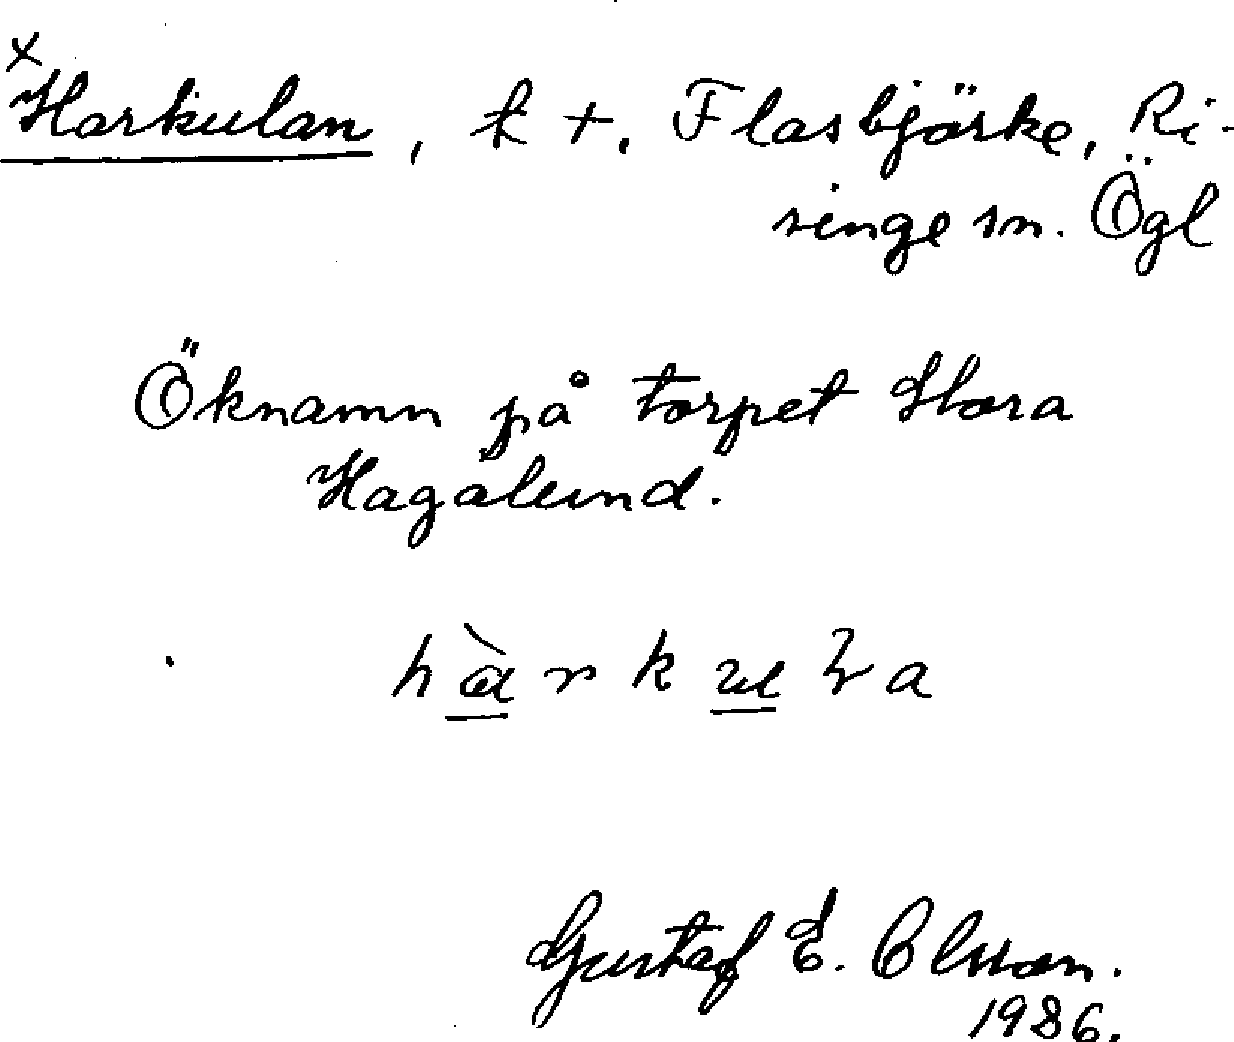 x
Harkulan, t +, Flasbjörke, Ri-
singe sn. Ögl
Öknamn på torpet Stora
Hagalund.
hàrkuɽa
Gustaf E. Olsson.
1986.